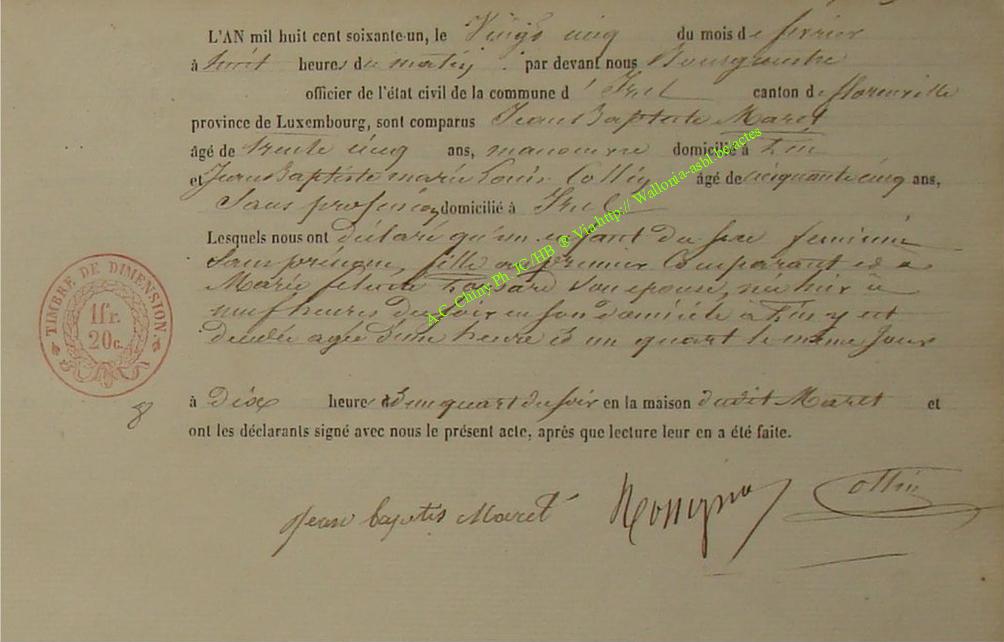 L'AN mil huit cent soixante-un, le Vingt cinq du mois de fevrier
à huit heures du matin, par devant nous Bourgmestre
officier de l'état civil de la commune d'Izel canton de florenville
province de Luxembourg, sont comparus Jean Baptiste Maret
âgé de trente cinq ans, manoeuvre domicilié à
et Jean Baptiste marie Louis Collin âgé de cinquante cinq ans,
Sans profession, domicilié à Izel
Lesquels nous ont déclaré qu'un enfant du sexe feminin
Sans prenom, fille du premier Comparant et de
Marie felicité son epouse, née hier à
neuf heures du soir en son domicile à y est
décédée agée d'une heure et un quart le même jour
à Dix heures et un quart du soir en la maison dudit Maret et
ont les déclarants signé avec nous le présent acte, après que lecture leur en a été faite.
8
Jean baptis Maret Rossignol Collin
TIMBRE DE DIMENSION.
1fr.
20c.
A.C. Chiny Ph. JC/HB ® Via http:// Wallonia-asbl.be/actes